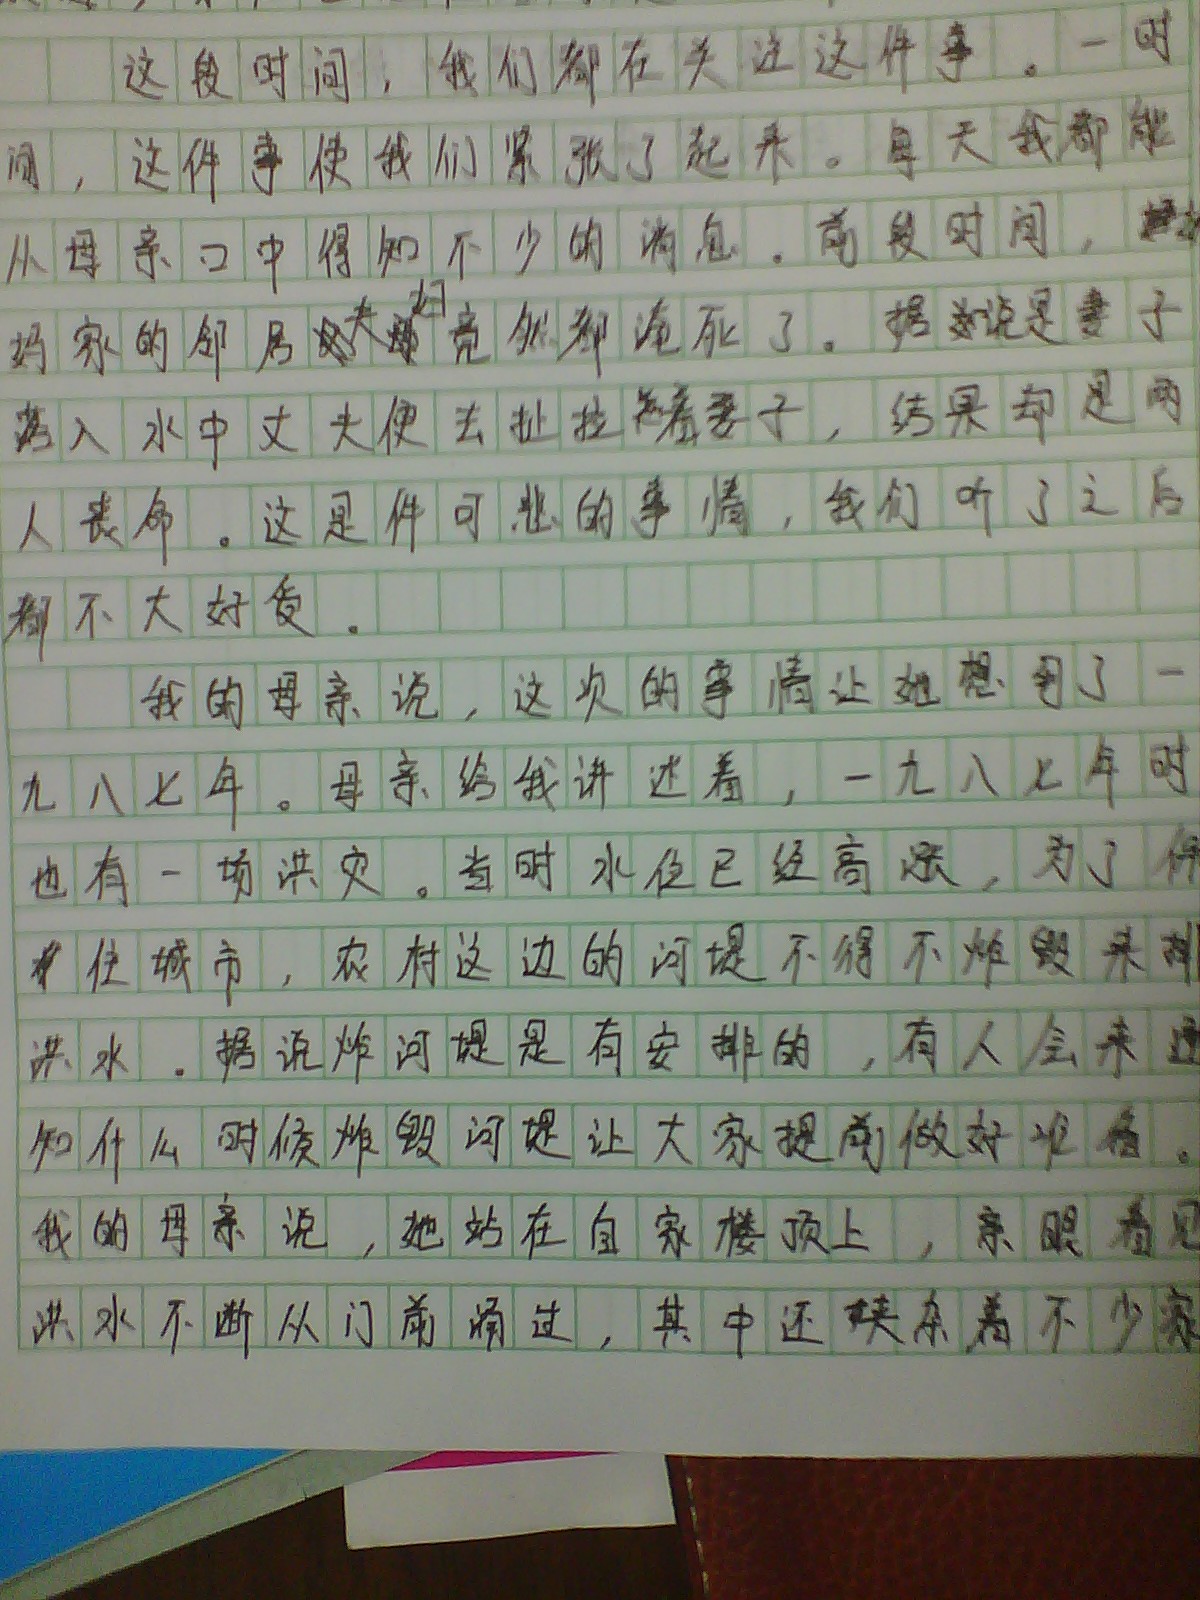 这段时间，我们都在关注这件事。一时
间，这件事使我们紧张了起来。每天我都能
从母亲口中得知不少的消息．前段时间，
妈家的邻居夫妇竟然都淹死了。据说是妻子
落入水中丈夫便去扯拉着妻子，结果却是两
人丧命。这是件可悲的事情，我们听了之后
都不大好受．
我的母亲说，这次的事情让她想到了一
九八七年。母亲给我讲述着，一九八七年时
也有一场洪灾。当时水位已经高涨，为了保
护住城市，农村这边的河堤不得不炸毁来排
洪水．据说炸河堤是有安排的，有人会来通
知什么时候炸毁河堤让大家提前做好准备。
我的母亲说，她站在自家楼顶上，亲眼看见
洪水不断从门前涌过，其中还夹杂着不少家